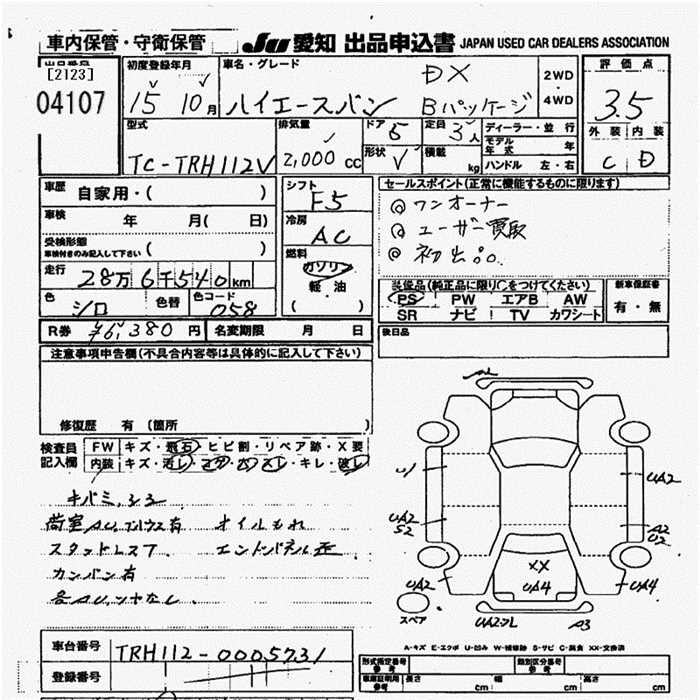 車内保管・守衛保管 JU 愛知 出品申込書 JAPAN USED CAR DEALERS ASSOCIATION
出品番号 [2123] 04107
初度登録年月 15 10月
車名・グレード DX
ハイエースバン Bパッケージ
2WD・4WD
評価点 3.5
外装 内装
C D
型式 TC-TRH112V
排気量 2,000cc
ドア 5 定員 3人
形状 V 積載 kg
ディーラー・並行
モデル年式 年
ハンドル 左・右
車歴 自家用・( )
車検 年 月( 日)
受検形態
車検付きのみ記入して下さい ( )
走行 28万6千540km
色 シロ 色替 色コード 058
シフト F5
冷房 AC
燃料 ガソリン 軽・油 ( )
セールスポイント(正常に機能するものに限ります)
◎ワンオーナー
◎ユーザー買取
◎初出品
装備品(純正品に限り○をつけてください)
PS PW エアB AW
SR ナビ TV カワシート
新車保証書 有・無
R券 ¥6,380円 名変期限 月 日
後日品
注意事項申告欄(不具合内容等は具体的に記入して下さい)
修復歴 有(箇所 )
検査員記入欄
FW キズ・飛石・ヒビ割・リペア跡・X要
内装 キズ・汚レ・コゲ・穴・スレ・キレ・破レ
キバミ,シミ
荷室AU,デコハウス有 オイルもれ
スタッドレスT. エンドパネル歪
カンバン有
各AU,ツヤなし
A1
U1 UA2
UA2 S2 A2 U2
UA2 XX UA4 UA4
スペア UA2ワレ A3
A-キズ E-エクボ U-凹み W-補修跡 S-サビ C-腐食 XX-交換済
車台番号 TRH112-0005731
登録番号
形式指定番号 参考 類別区分番号 参考
車庫証明用 参考 長さ cm 幅 cm 高さ cm